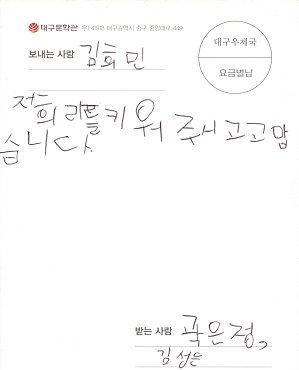 대구문학관 우) 41908 대구광역시 중구 중앙대로 449
대구우체국
요금별납
보내는 사람 김희민
저희 리틀 키워 주시고 고맙
습니다.
받는 사람 곽은정,
김성은